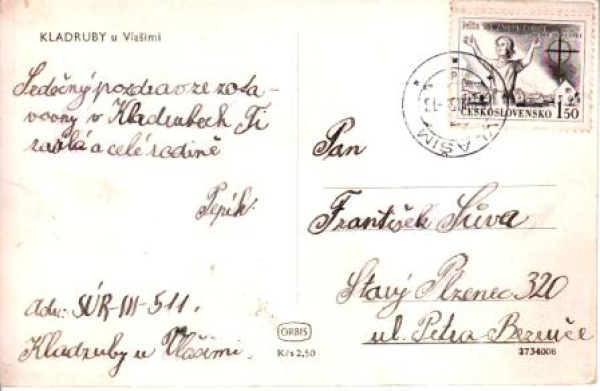 KLADRUBY u Vlašimi
Sedečný pozdrav ze zota-
vovny v Kladrubech Ti
zasílá a celé rodině
Pepík.
adr.: SÚR-III-511.
Kladruby u Vlašimi.
ORBIS
Kčs 2,50
ČESKOSLOVENSKO 1,50
VLAŠIM
Pan
František Sůva
Starý Plzenec 320
ul. Petra Bezruče
2734006